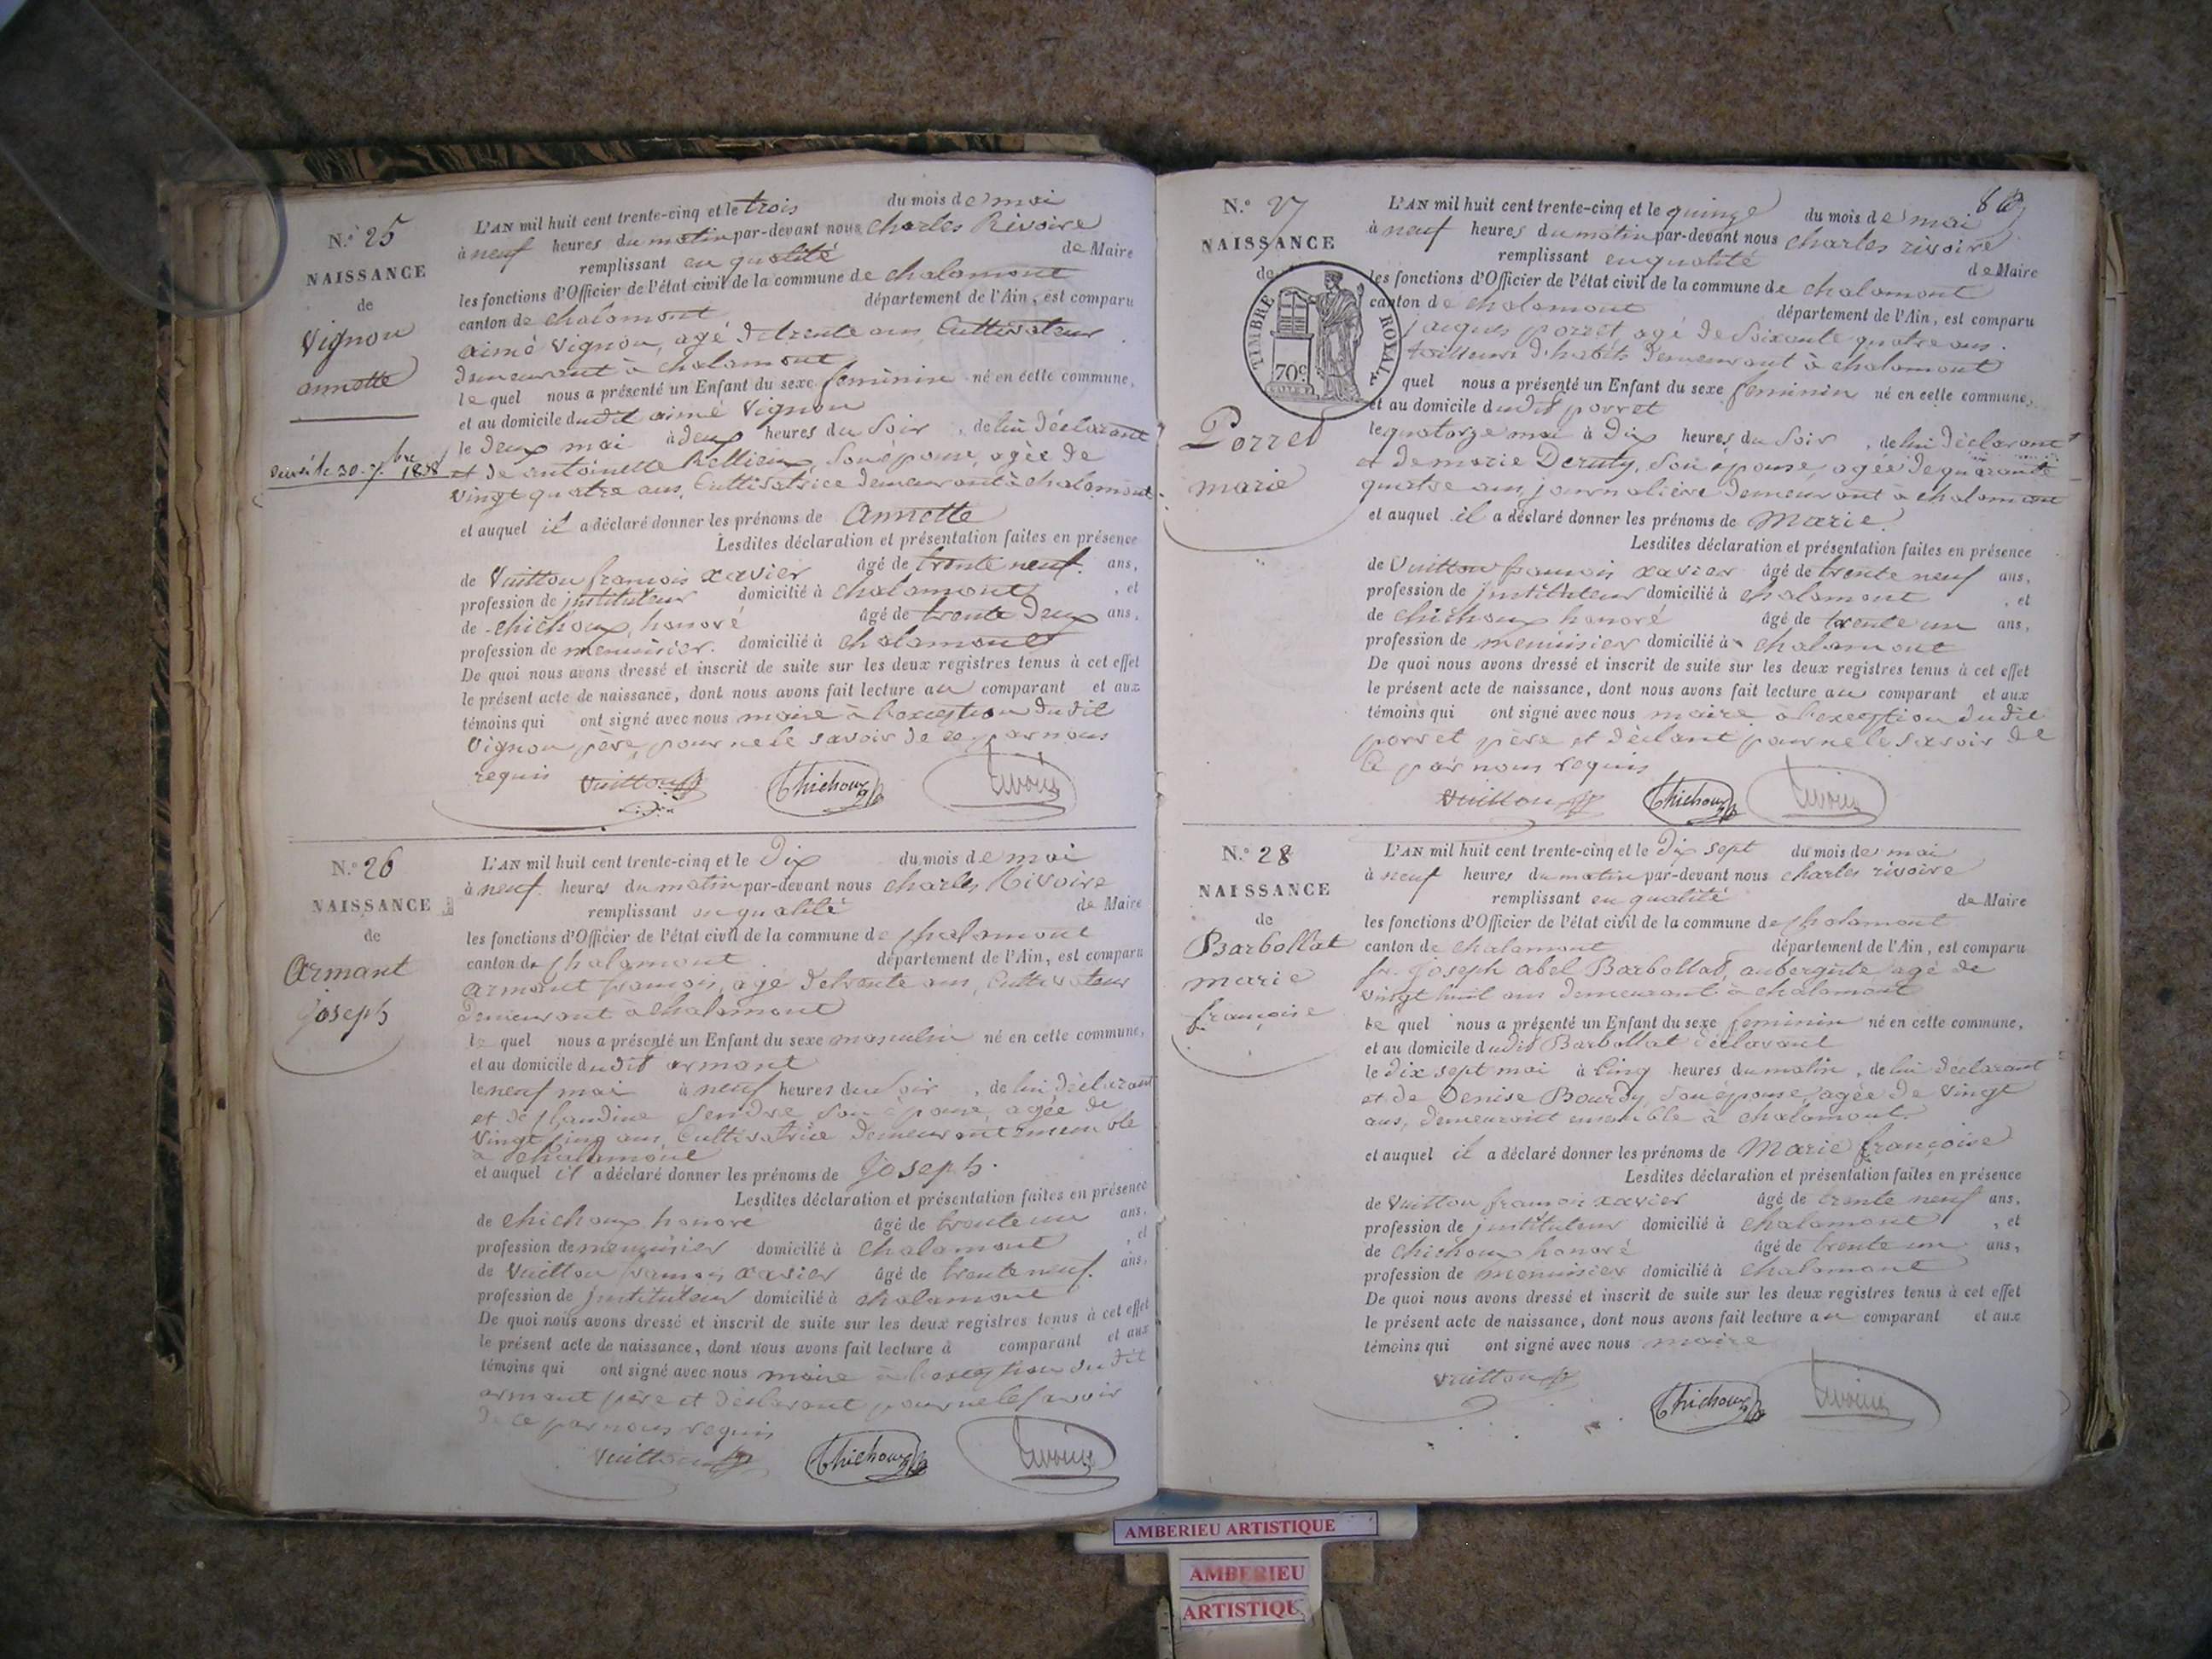 N.º 25
NAISSANCE
de
Vignon
annette
décédé le 30 7bre 1838
L'AN mil huit cent trente-cinq et le trois du mois de mai
à neuf heures du matin par-devant nous charles Rivoire
remplissant en qualité de Maire
les fonctions d'Officier de l'état civil de la commune de chalamont
canton de chalamont département de l'Ain, est comparu
aimé Vignon, agé de trente ans, Cultivateur
demeurant à chalamont
le quel nous a présenté un Enfant du sexe feminin né en cette commune,
et au domicile dudit aimé Vignon
le deux mai à deux heures du Soir, de lui déclarant
et de antoinette Rellieux, Son épouse, agée de
vingt quatre ans, Cultivatrice demeurant à chalamont
et auquel il a déclaré donner les prénoms de Annette
Lesdites déclaration et présentation faites en présence
de Vuitton francois xavier âgé de trente neuf ans,
profession de jnstituteur domicilié à chalamont, et
de chichoux, honoré âgé de trente deux ans,
profession de menuisier. domicilié à chalamont
De quoi nous avons dressé et inscrit de suite sur les deux registres tenus à cet effet
le présent acte de naissance, dont nous avons fait lecture au comparant et aux
témoins qui ont signé avec nous maire à l'exception dudit
Vignon père, pour ne le savoir de ce par nous
requis Vuitton Chichoux Rivoire
N.º 26
NAISSANCE
de
Armant
Joseph
L'AN mil huit cent trente-cinq et le Dix du mois de mai
à neuf heures du matin par-devant nous charles Rivoire
remplissant en qualité de Maire
les fonctions d'Officier de l'état civil de la commune de chalamont
canton de chalamont département de l'Ain, est comparu
armant francois, agé de trente ans, Cultivateur
demeurant à chalamont
le quel nous a présenté un Enfant du sexe masculin né en cette commune,
et au domicile dudit armant
le neuf mai à neuf heures du Soir, de lui déclarant
et de Claudine Sendre Son épouse, agée de
vingt cinq ans, Cultivatrice demeurant ensemble
à chalamont
et auquel il a déclaré donner les prénoms de Joseph.
Lesdites déclaration et présentation faites en présence
de chichoux honoré âgé de trente un ans,
profession de menuisier domicilié à chalamont, et
de Vuitton francois xavier âgé de trente neuf. ans,
profession de jnstituteur domicilié à chalamont
De quoi nous avons dressé et inscrit de suite sur les deux registres tenus à cet effet
le présent acte de naissance, dont nous avons fait lecture à comparant et aux
témoins qui ont signé avec nous maire à l'exception dudit
armant père et déclarant pour ne le savoir
de ce par nous requis
Vuitton Chichoux Rivoire
N.º 27
NAISSANCE
de
TIMBRE ROYAL
70c
Porret
marie
L'AN mil huit cent trente-cinq et le quinze du mois de mai
à neuf heures du matin par-devant nous charles rivoire
remplissant en qualité de Maire
les fonctions d'Officier de l'état civil de la commune de chalamont
canton de chalamont département de l'Ain, est comparu
jacques porret agé de Soixante quatre ans.
tailleur d'habits demeurant à chalamont
quel nous a présenté un Enfant du sexe feminin né en cette commune,
et au domicile dudit porret
le quatorze mai à Dix heures du Soir, de lui déclarant
et de marie Deruty, Son épouse, agée de quarante
quatre ans, journalière demeurant à chalamont
et auquel il a déclaré donner les prénoms de Marie
Lesdites déclaration et présentation faites en présence
de Vuitton francois xavier âgé de trente neuf ans,
profession de jnstituteur domicilié à chalamont, et
de chichoux honoré âgé de trente un ans,
profession de menuisier domicilié à chalamont
De quoi nous avons dressé et inscrit de suite sur les deux registres tenus à cet effet
le présent acte de naissance, dont nous avons fait lecture au comparant et aux
témoins qui ont signé avec nous maire à l'exception dudit
porret père et déclant pour ne le savoir de
ce par nous requis
Vuitton Chichoux Rivoire
N.º 28
NAISSANCE
de
Barbollat
marie
françoise
L'AN mil huit cent trente-cinq et le Dix sept du mois de mai
à neuf heures du matin par-devant nous charles rivoire
remplissant en qualité de Maire
les fonctions d'Officier de l'état civil de la commune de chalamont
canton de chalamont département de l'Ain, est comparu
fr. joseph abel Barbollat, aubergiste agé de
vingt huit ans demeurant à chalamont
le quel nous a présenté un Enfant du sexe feminin né en cette commune,
et au domicile dudit Barbollat déclarant
le dix sept mai à Cinq heures du matin, de lui déclarant
et de Denise Bourdy, Son épouse, agée de vingt
ans, demeurant ensemble à chalamont.
et auquel il a déclaré donner les prénoms de Marie françoise
Lesdites déclaration et présentation faites en présence
de Vuitton francois xavier âgé de trente neuf ans,
profession de jnstituteur domicilié à chalamont, et
de chichoux honoré âgé de trente un ans,
profession de menuisier domicilié à chalamont
De quoi nous avons dressé et inscrit de suite sur les deux registres tenus à cet effet
le présent acte de naissance, dont nous avons fait lecture au comparant et aux
témoins qui ont signé avec nous maire
Vuitton Chichoux Rivoire
AMBERIEU ARTISTIQUE
AMBERIEU
ARTISTIQUE